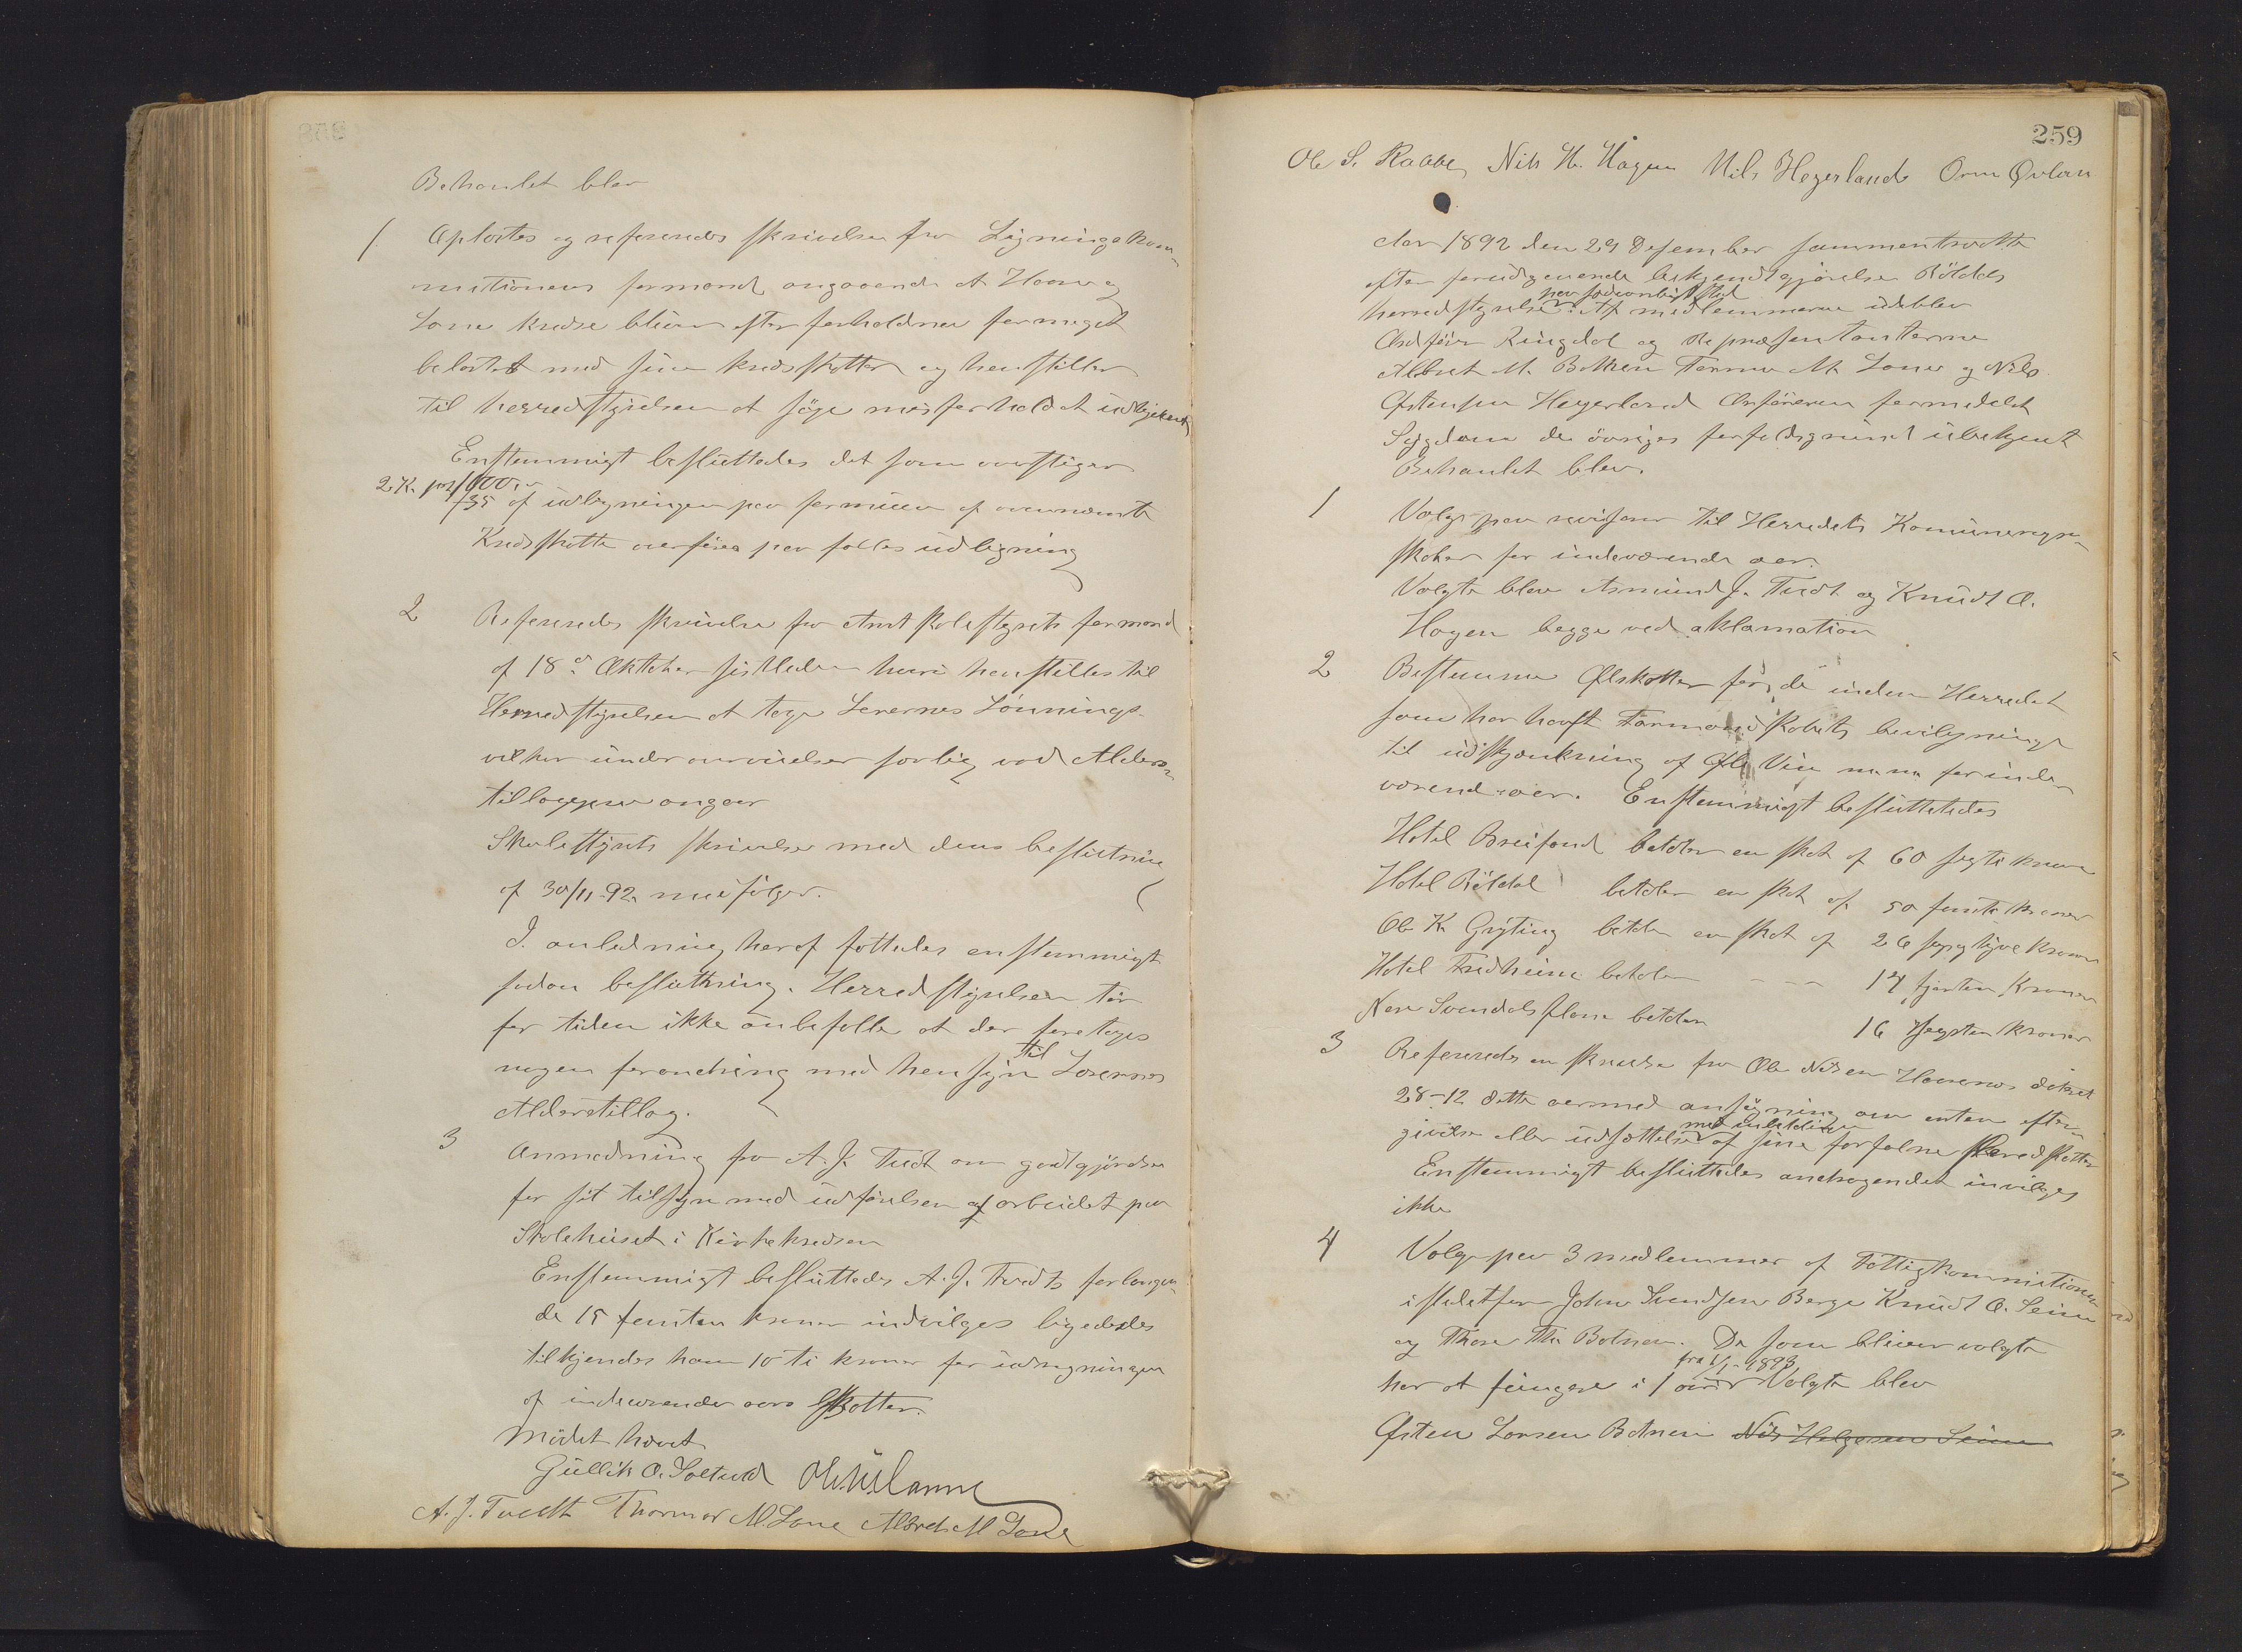 Behanlet blev
1. Oplæstes og refereredes skrivelse fra Ligningskom-
mitionens formand angaaende at Haare og
Lone kredse bliver efter forholdene formeget
belastet med sine kredsskatter og henstiller
til herredstyrelsen at søge misforholdet udlignet
Enstemmigt besluttedes det som overstiger
2 K. pr 100
af udligningen paa formuen af ovennævnte
Kredsskatter overføres paa fælles udligning
2 Refereredes skrivelse fra Amtskolestyrets formand
af 18de Oktober sistleden hvori henstilles til
Herredstyrelsen at tage Lærernes Lønnings-
vilkor under overveielse særlig vad Alders-
tillæggene angaar
Skolestyrets skrivelse med dens beslutning
af 30/11 92 medfølger.
I anledning heraf fattedes enstemmigt
sodan besluttning. Herredstyrelsen tør
for tiden ikke anbefalle at der foretages
nogen forandring med hensyn til Lærernes
Alderstillæg.
3 Anmodning fra A. J. Tvedt om godtgjørelse
for sit tilsyn med udførelsen af arbeidet paa
Skolehuset i Kirkekredsen
Enstemmigt besluttedes A. J. Tvedts forlangen-
de 15 femten kroner indvilges ligeledes
tilkjendes ham 10 ti kroner for udregningen
af indeværende aars Skatter.
Mødet hævet
Gullik O. Saltvold
A. J. Tvedt Thormor M. Lone Albret M Lone
259
Ole S. Rabbe Nils H. Hagen Nils Hegerland Orm Øvlan
Aar 1892 den 29 Desember sammentraadte
efter forudgaaende bekjendtgjørelse Röldals
paa sædvanligt sted
herredstyrelse. Af medlemmerne udeblev
Ordfører Ringdal og Repræsentanterne
Albret M. Botnen Tormo M. Lone og Nils
Østensen Hegerland Orføreren formedelst
Sygdom de øvriges forfaldsgrund ubekjent
Behanlet blev.
1 Valg paa revisorer til Herredets Komuneregn-
skaber for indeværende aar.
Valgte blev Asmund J. Tvedt og Knudt O.
Hagen begge ved aklamation
2 Bestemme Ølskatten for de inden Herredet
som har havft Formandskabets bevilgninger
til udskjænkning af Øl, Vin m.m. for inde-
værend aar. Enstemmigt besluttetedes
Hotel Breifond betaler en skat af 60 segti kroner
Hotel Röldal betaler en skat af 50 femti kroner
Ole K Gryting betaler en skat af 26 segogtyve kroner
Hotel Fredheim betaler - - - 14 fjorten Kroner
Nere Svendalsflone betaler 16 Segsten kroner
3 Refereredes en skrivelse fra Ole Nilsen Haarenes datert
28-12 dette aar med ansøgning om enten efter-
med inbetalingen
givelse eller udsættelse af sine forfalne Heredskatter
Enstemmigt besluttedes andragendet invilges
ikke
4 Valg paa 3 medlemmer af Fattigkommitionen
istedetfor John Svendsen Berge Knudt O. Seim
og Thore Botnen. De som bliver valgte
fra 1/1-1893
har at fungere i 1 aar Valgte blev
Østen Larsen Botnen Nils Helgesen Seim